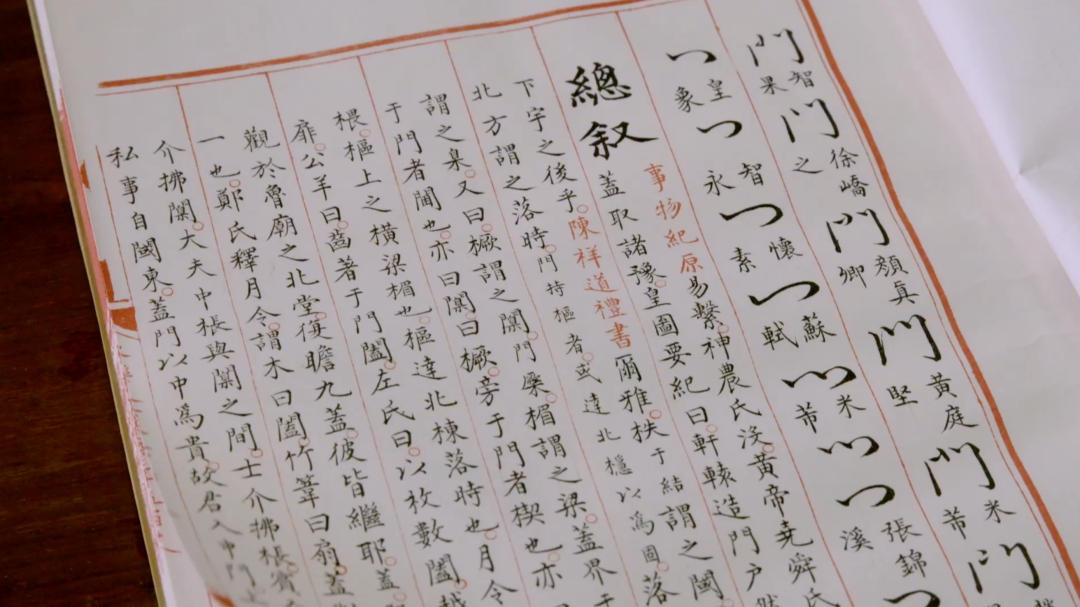 門智果門徐嶠之門顏真卿門黃庭堅門米芾門
门皇象门智永门懷素门蘇軾门米芾门门張錦溪门
總叙
事物紀原易繫神農氏沒黃帝堯舜氏
蓋取諸豫皇圖要紀曰軒轅造門戶然
下宇之後乎陳祥道禮書爾雅柣于結謂之閾
北方謂之落時門持樞者或達北檼以為固落
謂之臬又曰橛謂之闑門楣謂之梁蓋界于
于門者閫也亦曰闑曰橛旁于門者楔也亦
棖樞上之橫梁楣也樞達北棟落時也月令
扉公羊曰齒著于門闔左氏曰以枚數闔越
觀於魯廟之北堂復瞻九蓋彼皆繼耶蓋
一也鄭氏釋月令謂木曰闔竹葦曰扇蓋
介拂闑大夫中棖與闑之間士介拂棖賓
私事自闑東蓋門以中為貴故君入中門上